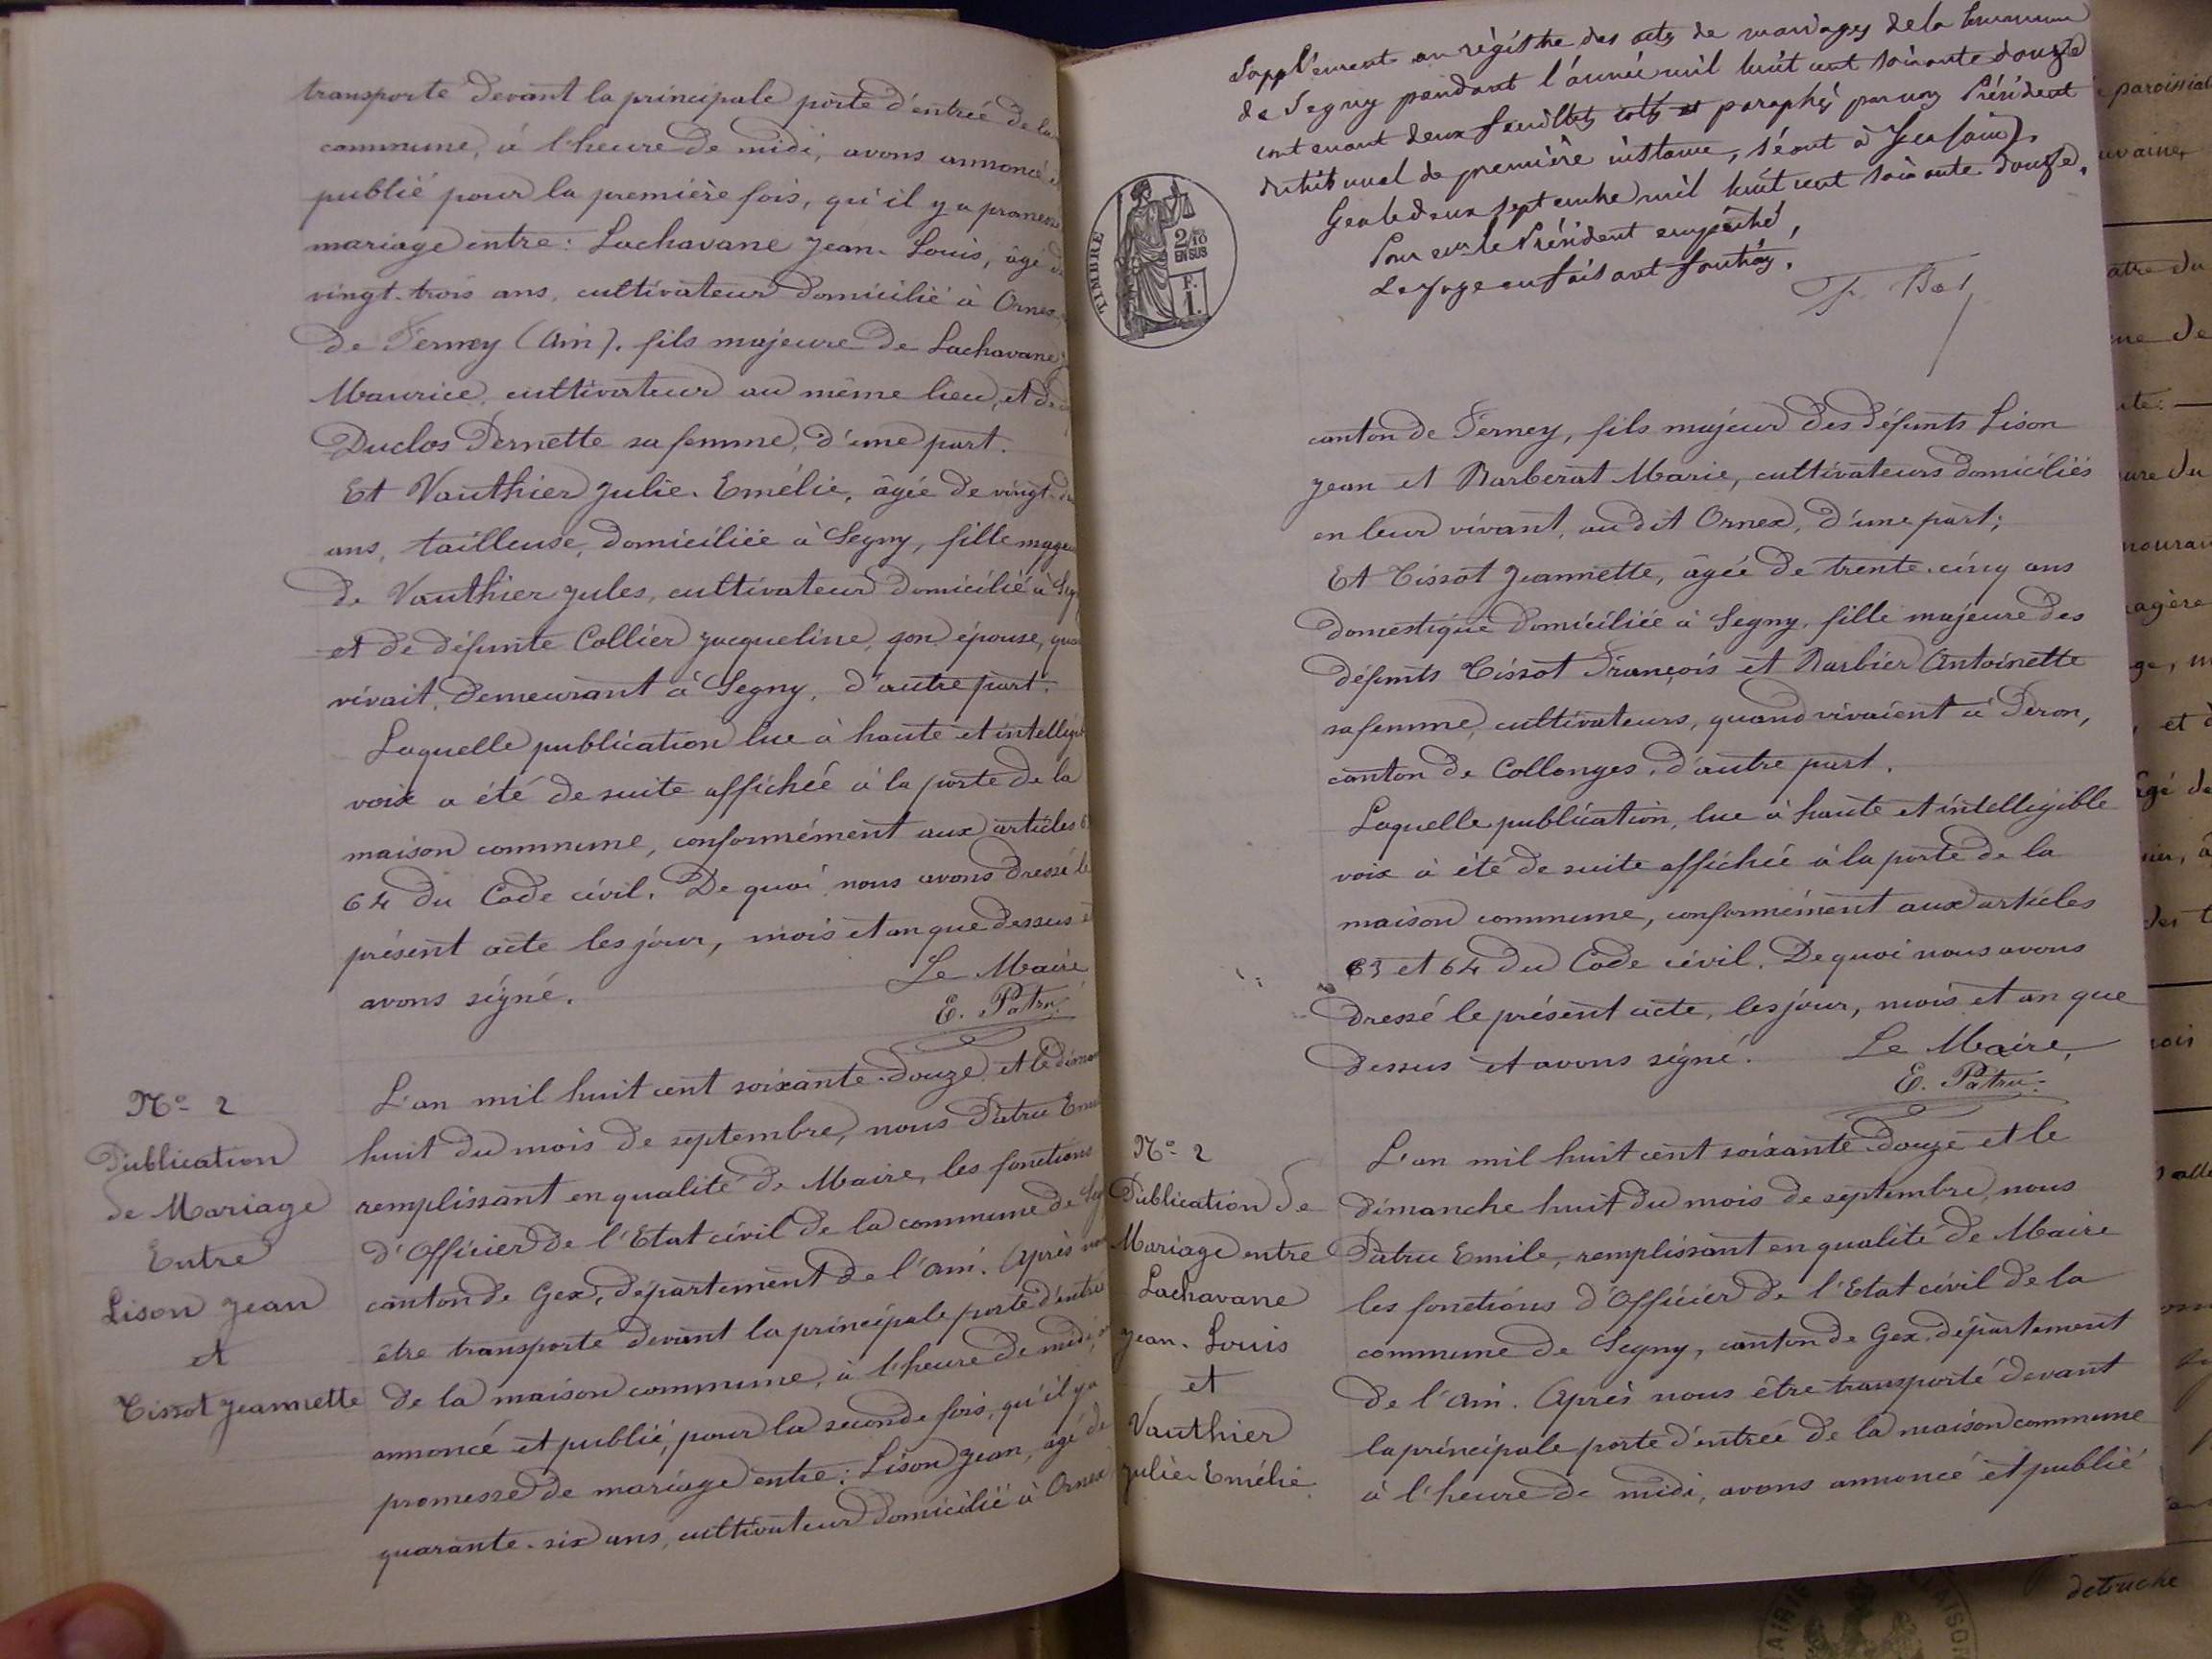 transporte devant la principale porte d'entrée de la
commune, à l'heure de midi, avons annoncé et
publié pour la première fois, qu'il y a promesse
mariage entre : Lachavane Jean-Louis, âgé de
vingt-trois ans, cultivateur domicilié à Ornex
de Ferney (Ain), fils majeure de Lachavane
Maurice, cultivateur au même lieu, et de
Duclos Pernette sa femme, d'une part.
Et Vauthier Julie-Emélie, âgée de vingt-
ans, tailleuse, domiciliée à Segny, fille majeu
de Vauthier Jules, cultivateur domicilié à Seg
et de défunte Collier Jacqueline, son épouse, qua
vivait, demeurant à Segny, d'autre part.
Laquelle publication lue à haute et intelligi
voix a été de suite affichée à la porte de la
maison commune, conformément aux articles 6
64 du Code civil. De quoi nous avons dressé le
présent acte les jour, mois et an que dessus et
avons signé.
Le Maire
E. Patru
N° 2
Publication
de Mariage
Entre
Lison Jean
et
Tissot Jeannette
L'an mil huit cent soixante-douze et le diman
huit du mois de septembre, nous Patru Emi
remplissant en qualité de Maire, les fonctions
d'Officier de l'Etat civil de la commune de Seg
canton de Gex, département de l'Ain. Après nou
être transporté devant la principale porte d'entrée
de la maison commune, à l'heure de midi,
annoncé et publié, pour la seconde fois, qu'il y a
promesse de mariage entre : Lison Jean, âgé de
quarante-six ans, cultivateur domicilié à Ornex
Supplément au régistre des actes de mariages de la Commune
de Segny pendant l'année mil huit cent soixante douze
contenant deux feuillets cotés et paraphés par nous Président
du tribunal de première instance, séant à Gex (ain).
Gex le deux septembre mil huit cent soixante douze.
Pour le Président empêché,
Le Juge en faisant fonctions.
TIMBRE
2/10
EN SUS
F.
1.
canton de Ferney, fils majeur des défunts Lison
Jean et Barberat Marie, cultivateurs domiciliés
en leur vivant, audit Ornex, d'une part;
Et Tissot Jeannette, âgée de trente-cinq ans
domestique domiciliée à Segny, fille majeure des
défunts Tissot François et Barbier Antoinette
sa femme, cultivateurs, quand vivaient à Péron,
canton de Collonges, d'autre part.
Laquelle publication, lue à haute et intelligible
voix à été de suite affichée à la porte de la
maison commune, conformément aux articles
63 et 64 du Code civil. De quoi nous avons
dressé le présent acte, les jour, mois et an que
dessus et avons signé. Le Maire,
E. Patru
N° 2
Publication de
Mariage entre
Lachavane
Jean-Louis
et
Vauthier
Julie-Emélie
L'an mil huit cent soixante-douze et le
dimanche huit du mois de septembre, nous
Patru Emile, remplissant en qualité de Maire
les fonctions d'Officier de l'Etat civil de la
commune de Segny, canton de Gex, département
de l'Ain. Après nous être transporté devant
la principale porte d'entrée de la maison commune
à l'heure de midi, avons annoncé et publié